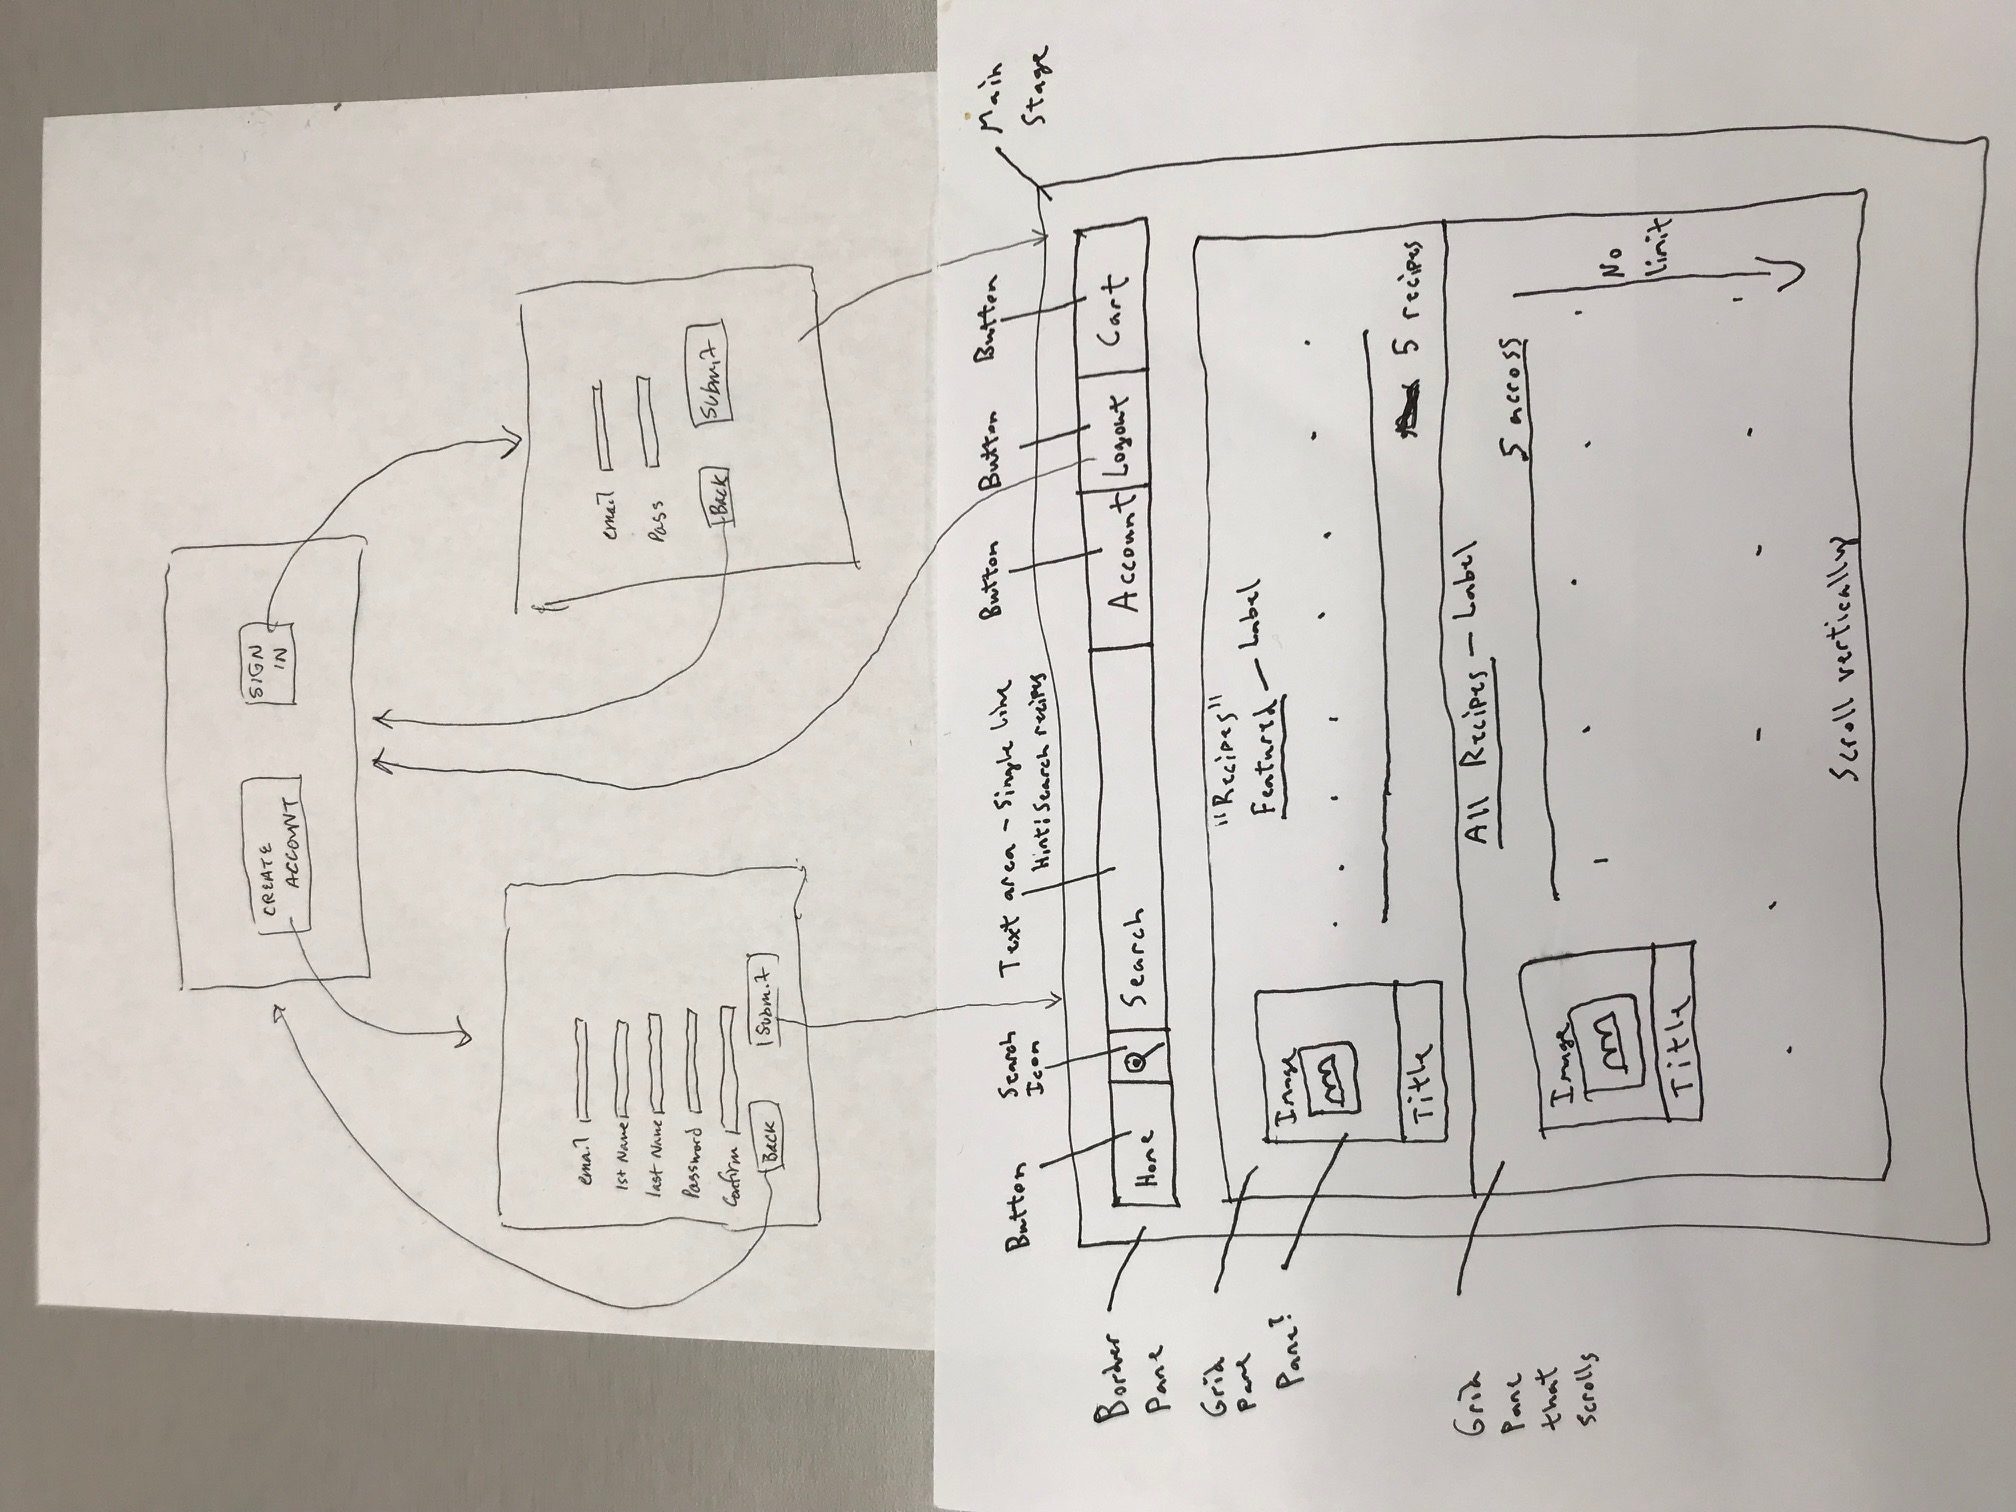 CREATE
ACCOUNT
SIGN
IN
email
1st Name
last Name
Password
Confirm
Back
Submit
email
Pass
Back
Submit
Button
Search
Icon
Text area - Single line
Hint: Search recipes
Button
Button
Button
Main
Stage
Border
Pane
Home
Search
Account
Logout
Cart
Grid
Pane
Pane?
"Recipes"
Featured - Label
Image
Title
5 recipes
Grid
Pane
that
scrolls
All Recipes - Label
5 across
Image
Title
No
limit
Scroll vertically